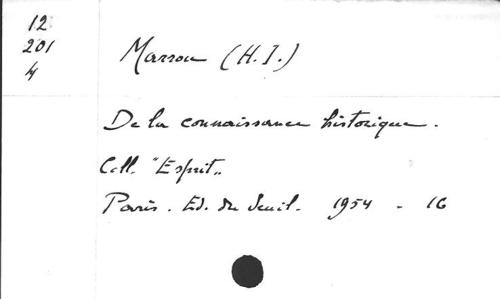 12
201
4
Marrou (H.I.)
De la connaissance historique.
Coll. "Esprit"
Paris. Ed. du Seuil. 1954 - 16